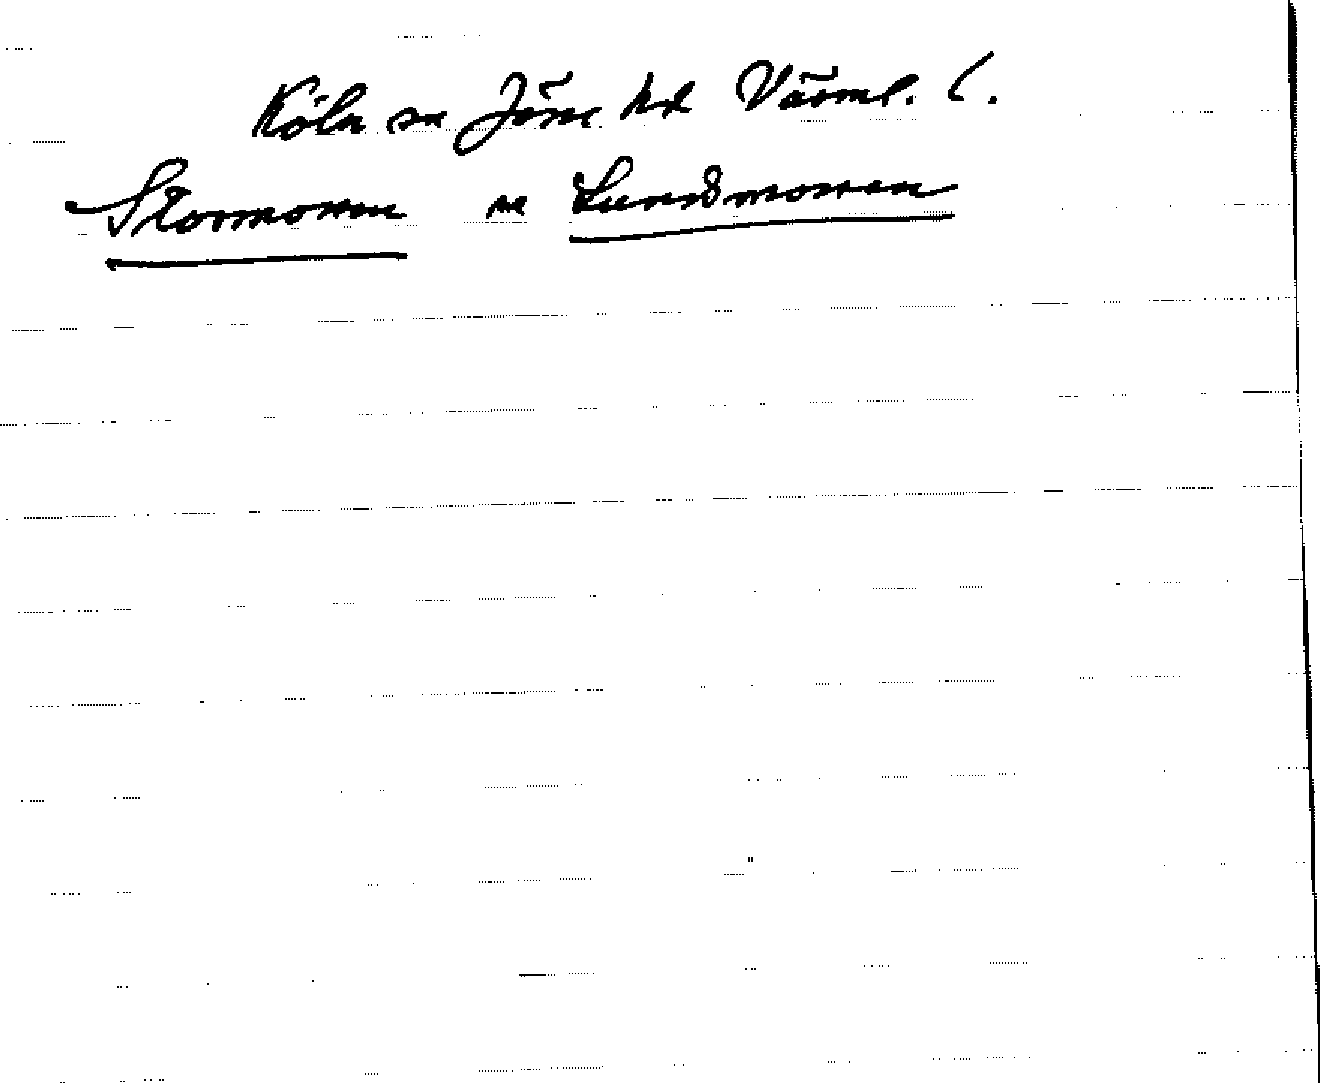 Köla sn Jösse hd Värml. l.
Stormossen se Lundmossen